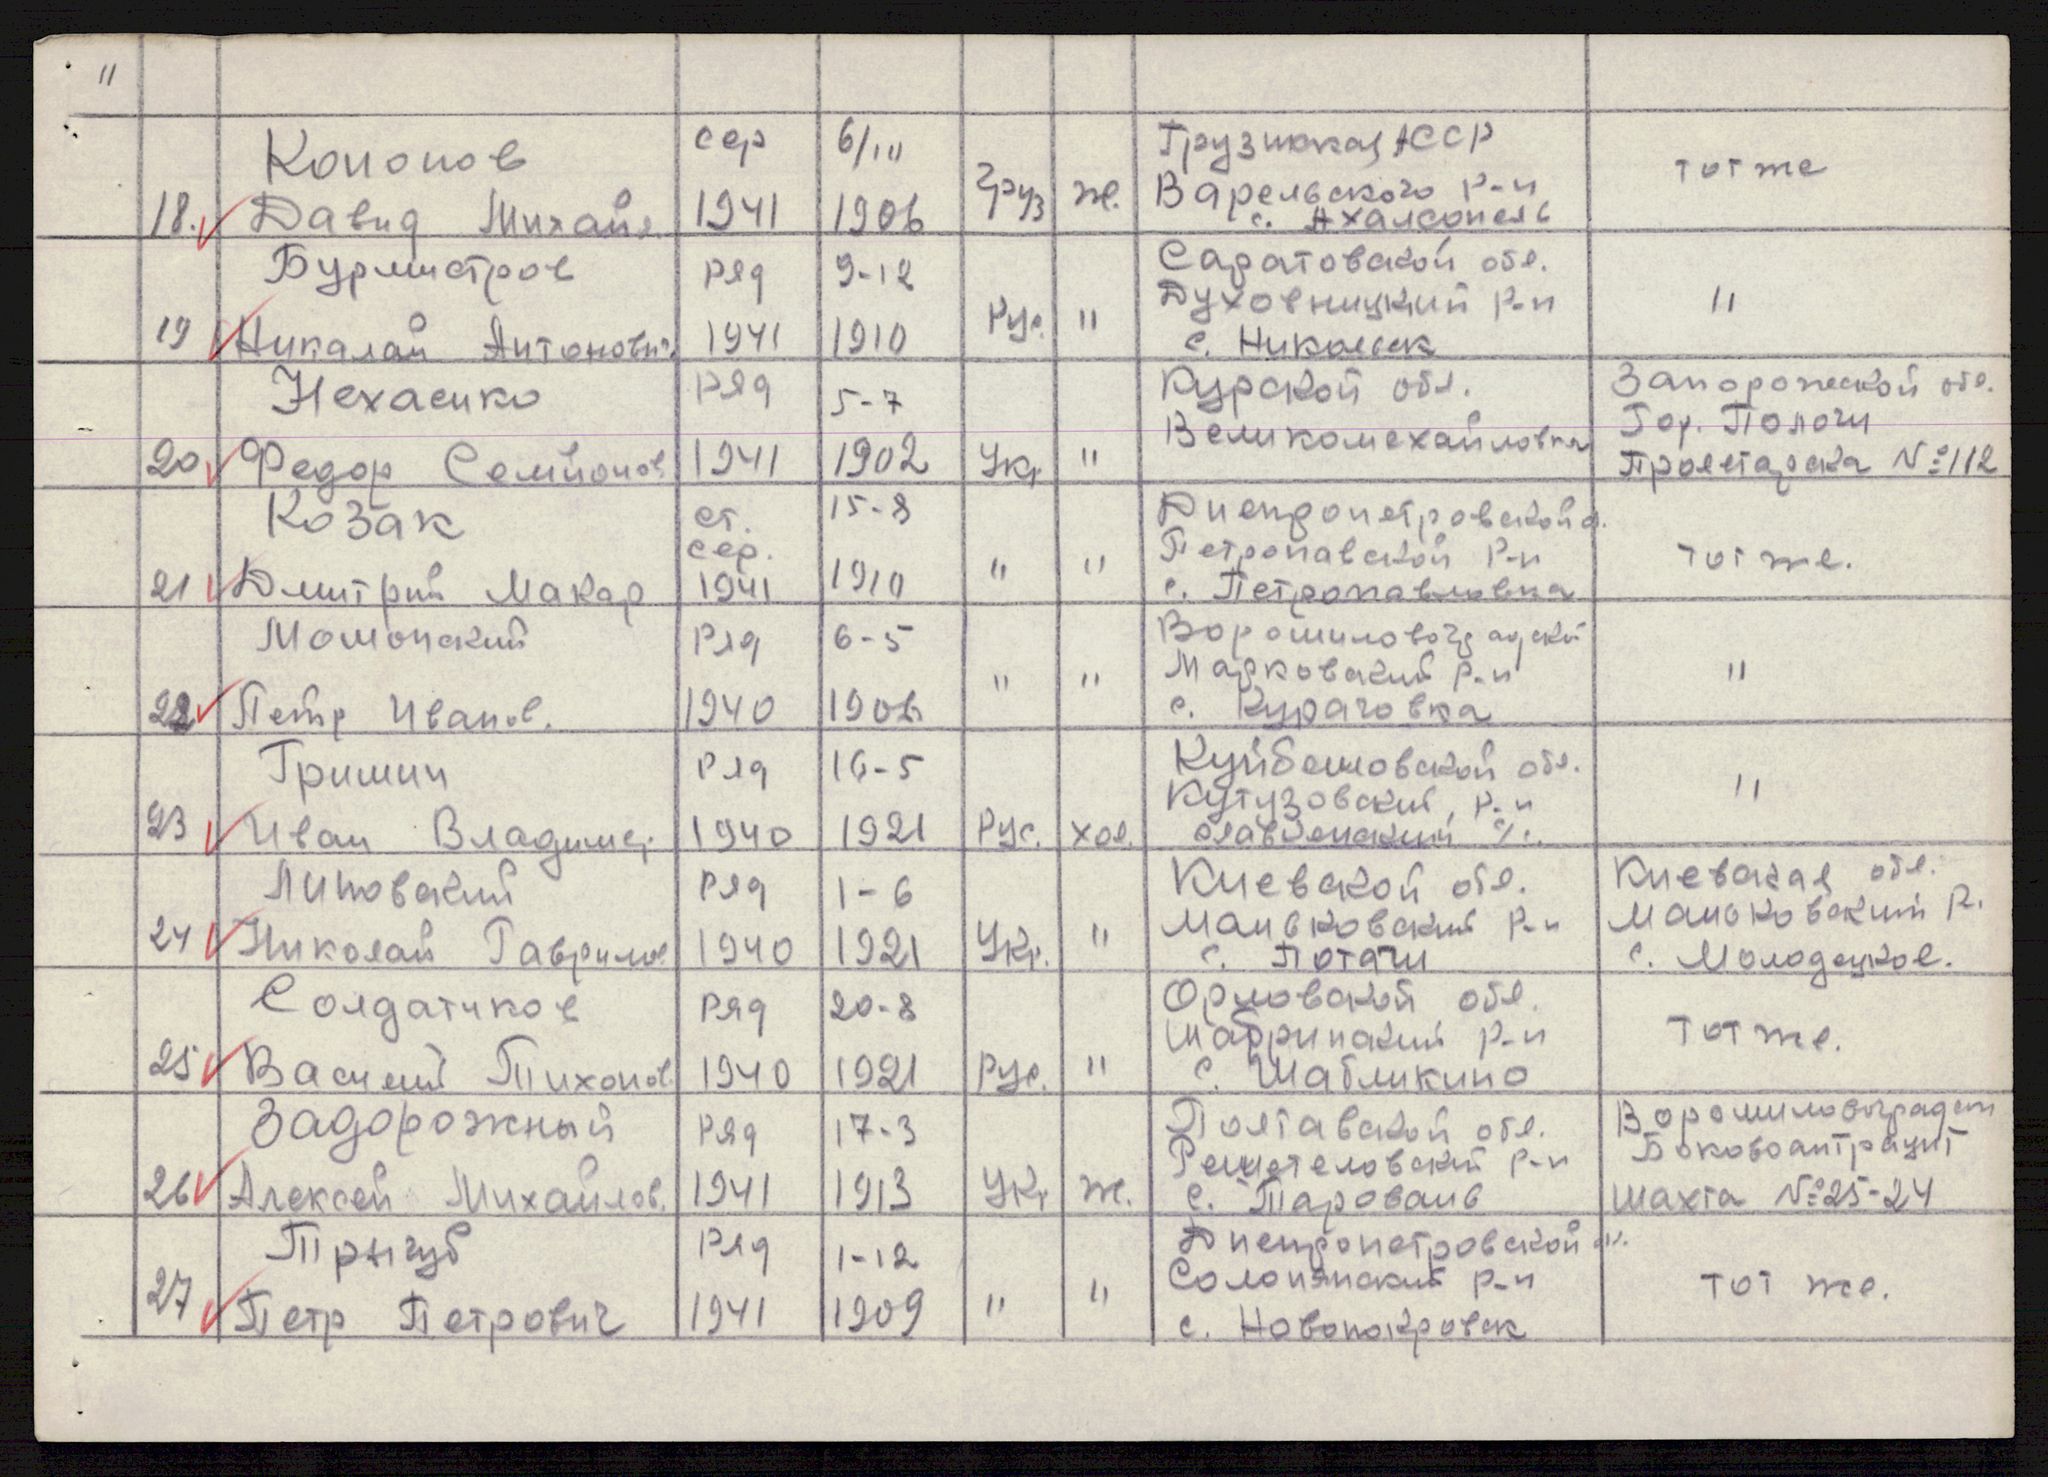 "
18. Кононов Давид Михайл. сер 1941 6/III 1906 Груз ж. Грузинская АССР Варельского р-н с. Ахалсопель тот же
19 Бурмистров Николай Антонович. ряд 1941 9-12 1910 Рус. " Саратовской обл. Духовницкий р-н с. Никольск "
20 Нехаенко Федор Семионов ряд 1941 5-7 1902 Укр " Курской обл. Великомехайловка Запорожской обл. Гор. Пологи Пролетарска №112
21 Козак Дмитрий Макар ст. сер. 1941 15-8 1910 " " Днепропетровской о. Петропавской р-н с. Петропавловка тот же.
22 Момонский Петр Иванов. ряд 1940 6-5 1906 " " Ворошиловоградской Марковский р-н с. Курачовка "
23 Гришин Иван Владимир. ряд 1940 16-5 1921 Рус. хол. Куйбешовской обл. Кутузовский р-н с/с. "
24 Липовский Николай Гаврилов ряд 1940 1-6 1921 Укр. " Киевской обл. Маньковский р-н с. Поташи Киевская обл. Маньковский р. с. Молодецкое.
25 Солдатиков Василий Тихонов. ряд 1940 20-8 1921 Рус. " Орловской обл. Шабринский р-н с. Шабликино тот же.
26 Задорожный Алексей Михайлов. ряд 1941 17-3 1913 Укр ж. Полтавской обл. Решетеловский р-н с. Таровань Ворошиловоградск Боковоантрацит шахта №25-24
27 Трыгуб Петр Петрович ряд 1941 1-12 1909 " " Днепропетровской о. Солонянский р-н с. Новопокровск тот же.